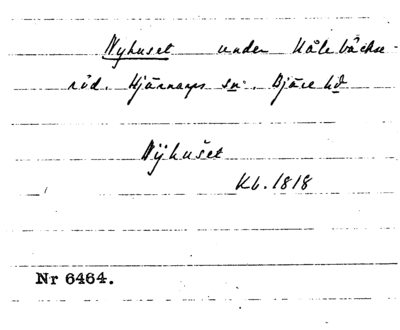 Nyhuset under Kålebäcks-
röd. Hjärnarps sn. Bjäre hd
Nÿhuset
Kb. 1818
Nr 6464.